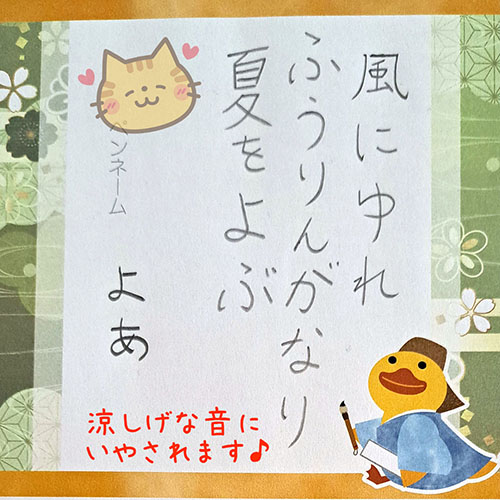 風にゆれ
ふうりんがなり
夏をよぶ
ペンネーム
よあ
涼しげな音に
いやされます♪